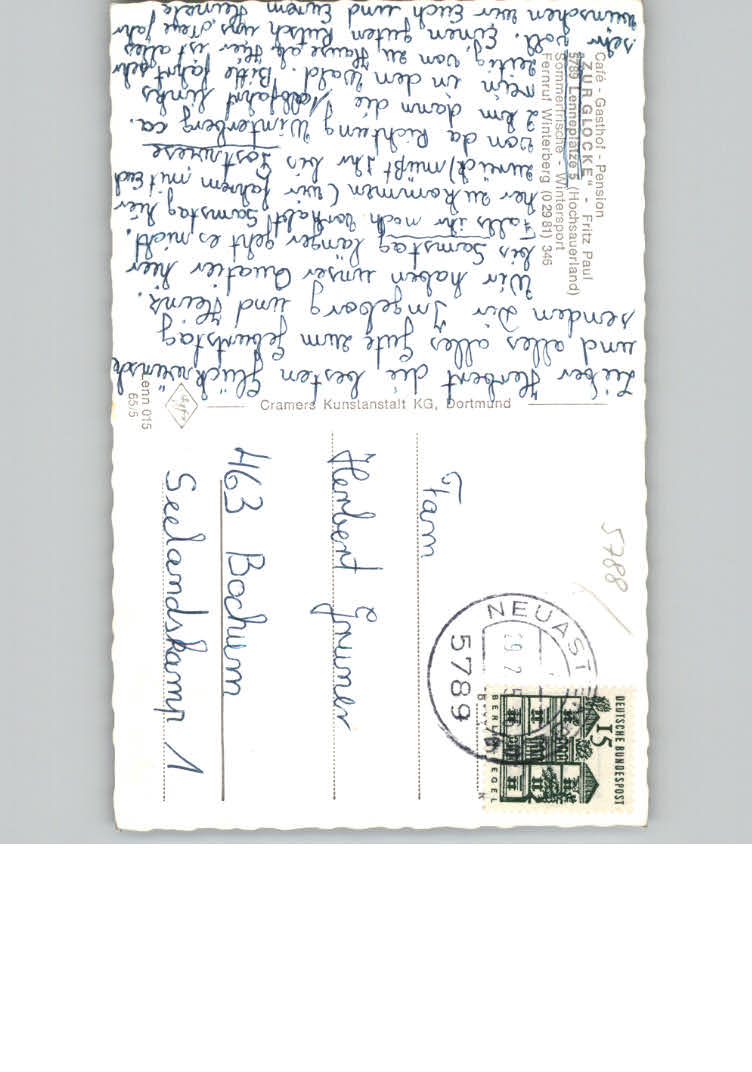 Café - Gasthof - Pension
"ZUR GLOCKE" - Fritz Paul
5789 Lenneplätze 5 (Hochsauerland)
Sommerfrische - Wintersport
Fernruf Winterberg (0 29 81) 346
Lieber Herbert die besten Glückwünsche
und alles alles gute zum Geburtstag
senden Dir Ingeborg und Heinz.
Wir haben unser Quatier hier
bis Samstag länger geht es nicht.
Falls ihr noch vorhabt Samstag hier
her zu kommen (wir fahren mit Euch
zurück) müßt Ihr bis
von da Richtung Winterberg ca.
2 km dann die Abfahrt links
rein in den Wald. Bitte fahrt sehr
zeitig von zu Hause ab Hier ist alles
sehr voll. Einen guten Rutsch ins neue Jahr
wünschen wir Euch und Eurem
Cramers Kunstanstalt KG, Dortmund
Lenn 015
65/5
5788
DEUTSCHE BUNDESPOST
15
BERLIN TEGEL
NEUAST
5789
Fam
Herbert Gruner
463 Bochum
Seelandskamp 1